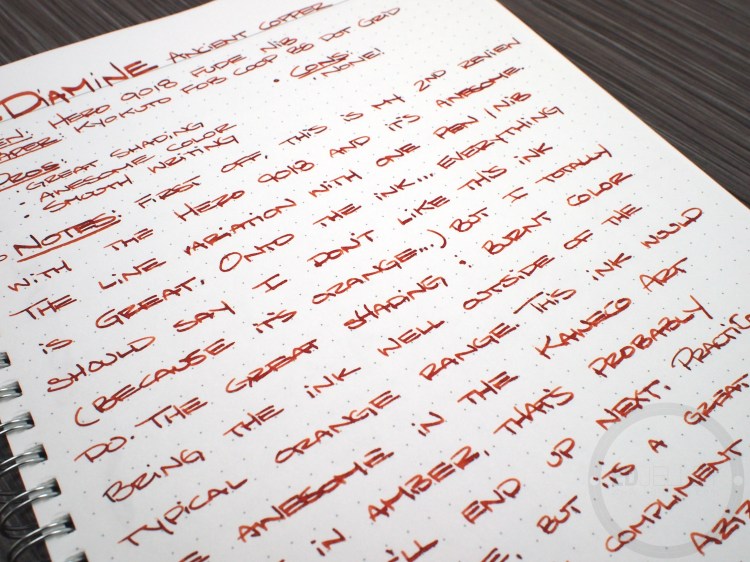 DIAMINE ANCIENT COPPER
EN: HERO 9018 FUDE NIB
APER: KYOKUTO FOB COOP B8 DOT GRID
PROS:
· GREAT SHADING
· AWESOME COLOR
· SMOOTH WRITING
· CONS:
NONE!
NOTES: FIRST OFF, THIS IS MY 2ND REVIEW
WITH THE HERO 9018 AND IT'S AWESOME.
THE LINE VARIATION WITH ONE PEN/NIB
IS GREAT. ONTO THE INK... EVERYTHING
SHOULD SAY I DON'T LIKE THIS INK
(BECAUSE IT'S ORANGE...) BUT I TOTALLY
DO. THE GREAT SHADING & BURNT COLOR
BRING THE INK WELL OUTSIDE OF THE
TYPICAL ORANGE RANGE. THIS INK WOULD
E AWESOME IN THE KAWECO ART
IN AMBER, THAT'S PROBABLY
ILL END UP NEXT. PRACTIC
E, BUT IT'S A GREAT
COMPLIMENT
AZIZ